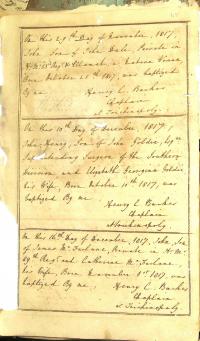 On this 29th Day of November, 1817,
John Son of John Dale, Private in
H. M. Regt. & Hannah, a Native Woman,
Born October 25th 1817, was baptized
By me. Henry C. Bankes
Chaplain
at Trichinopoly.
On this 10th Day of December, 1817,
John, Henry, Son of John Goldie, Esqre.
Superintending Surgeon of the Southern
Division, and Elizabeth Georgina Goldie
his Wife, Born October 10th 1817, was
baptized By me. Henry C. Bankes
Chaplain
Trichinopoly.
On this 16th Day of December, 1817, John, Son
of James Mc. Farlane, Private H. M.
Regt. and Catherine Mc. Farlane
his Wife, Born November 1st 1817, was
baptized By me. Henry C. Bankes
Chaplain
at Trichinopoly.